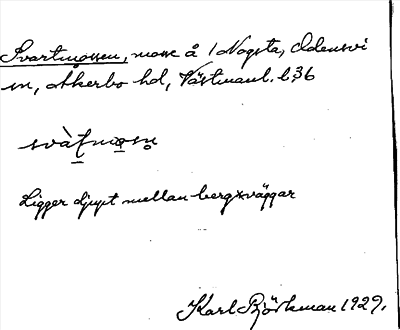 Svartmossen, mosse å 1 Nogsta, Odensvi
sn, Åkerbo hd, Västmanl. l. 36
svàṭmosn̥
Ligger djupt mellan bergsväggar
Karl Björkman 1929.